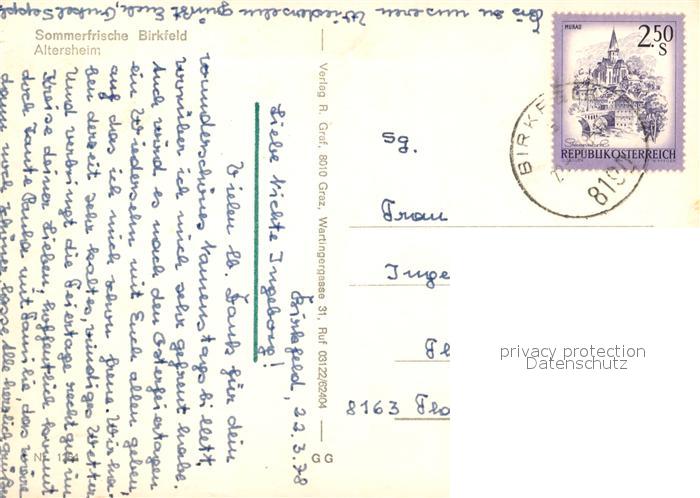 Sommerfrische Birkfeld
Altersheim
Birkfeld, 22.3.78
Liebe Nichte Ingeborg!
Vielen lb. Dank für dein
wunderschönes Namenstagsbillett
worüber ich mich sehr gefreut habe.
Auch wird es nach den Osterfeiertagen
ein Wiedersehn mit Euch allen geben
auf das ich mich schon freue. Wir ha-
ben derzeit sehr kaltes, windiges Wetter
Und verbringt die Feiertage recht gut im
Kreise deiner Lieben, hoffentlich kommt
doch Tante Paula mit Familie, das wäre
dann noch schöner. lasse Alle herzlich grüßen
Bis zu unseren Wiedersehn grüßt Euch, Onkel Seppl
Verlag R. Graf, 8010 Graz, Wartingergasse 31, Ruf 03122/62404
GG
MURAU
2.50
S
REPUBLIK ÖSTERREICH
BIRKF
8190
Sg.
Frau
Inge
8163 Fla
privacy protection
Datenschutz